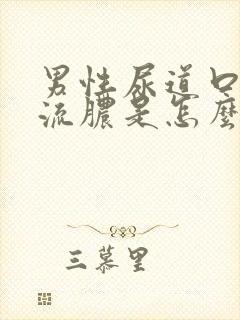 男性尿道口
流膿是怎麼
三慕里